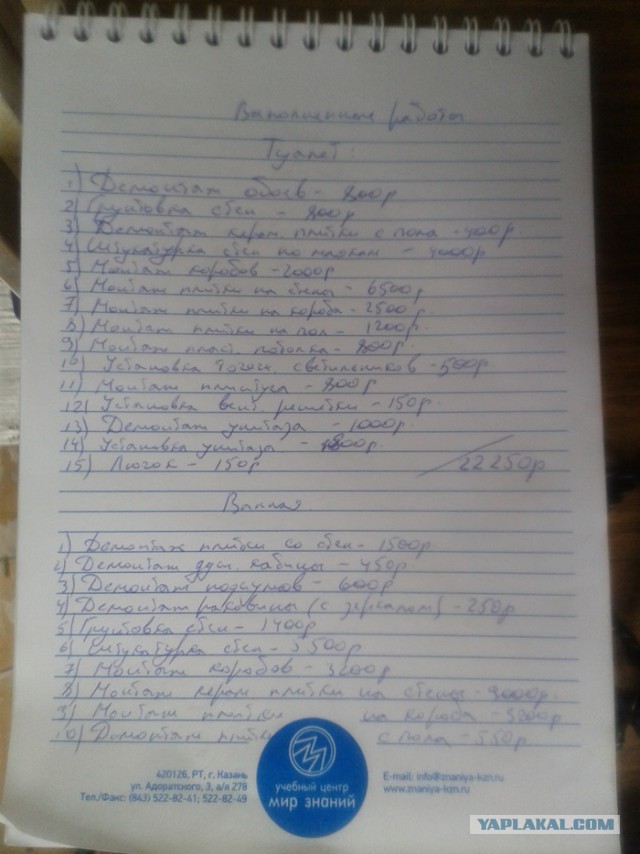 Выполненные работы
Туалет:
1) Демонтаж обоев - 800р
2) Грунтовка стен - 800р
3) Демонтаж керам. плитки с пола - 400р.
4) Штукатурка стен по маякам - 4000р
5) Монтаж коробов - 2000р
6) Монтаж плитки на стены - 6500р
7) Монтаж плитки на короба - 2500р.
8) Монтаж плитки на пол - 1200р.
9) Монтаж пласт. потолка - 800р.
10) Установка точеч. светильников - 500р.
11) Монтаж плинтуса - 800р
12) Установка вент. решетки - 150р.
13) Демонтаж унитаза - 1000р.
14) Установка унитаза -
15) Лючок - 150р
22250р
Ванная
1) Демонтаж плитки со стен - 1500р
2) Демонтаж душ. кабины - 450р
3) Демонтаж - 600р
4) Демонтаж раковины (с зеркалом) - 250р
5) Грунтовка стен - 1400р
6) Штукатурка стен - 5500р
7) Монтаж коробов - 3200р
8) Монтаж керам. плитки на стены - 9000р.
9) Монтаж плитки на короба - 3200р
10) Демонтаж плитки с пола - 550р
420126, РТ, г. Казань
ул. Адоратского, 3, а/я 278
Тел./Факс: (843) 522-82-41; 522-82-49
учебный центр
мир знаний
E-mail: info@znaniya-kzn.ru
www.znaniya-kzn.ru
YAPLAKAL.COM